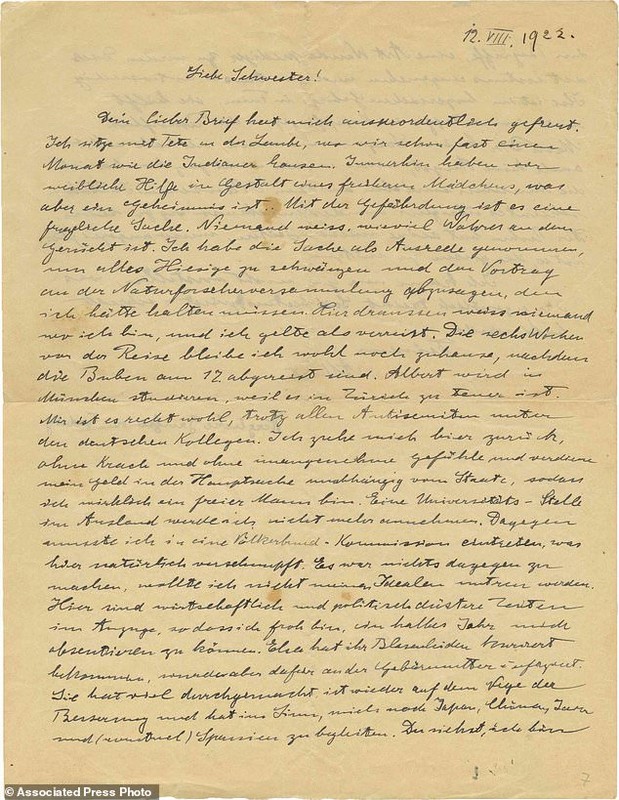 12. VIII. 1922.
Liebe Schwester!
Dein lieber Brief hat mich ausserordentlich gefreut.
Ich sitze mit Tete in der Laube, wo wir schon fast einen
Monat wie die Indianer hausen. Immerhin haben wir
weibliche Hilfe in Gestalt eines früheren Mädchens, was
aber ein Geheimnis ist. Mit der Gefährdung ist es eine
fragliche Sache. Niemand weiss, wieviel Wahres an dem
Gerücht ist. Ich habe die Sache als Ausrede genommen,
um alles Hiesige zu schwänzen und den Vortrag
an der Naturforscherversammlung abzusagen, den
ich hätte halten müssen. Hier draussen weiss niemand
wo ich bin, und ich gelte als verreist. Die sechs Wochen
vor der Reise bleibe ich wohl noch zuhause, nachdem
die Buben am 12 abgereist sind. Albert wird in
München studieren, weil es in Zürich zu teuer ist.
Mir ist es recht wohl, trotz allen Antisemiten unter
den deutschen Kollegen. Ich ziehe mich hier zurück,
ohne Krach und ohne unangenehme Gefühle und verdiene
mein Geld in der Hauptsache unabhängig vom Staate, sodass
ich wirklich ein freier Mann bin. Eine Universitäts-Stelle
im Ausland werde ich nicht mehr annehmen. Dagegen
musste ich in eine Völkerbund-Kommission eintreten, was
hier natürlich verschnupft. Es war nichts dagegen zu
machen, wollte ich nicht meinen Idealen untreu werden.
Hier sind wirtschaftlich und politisch düstere Zeiten
im Anzuge, sodass ich froh bin, ein halbes Jahr mich
absentieren zu können. Elsa hat ihr Blasenleiden kuriert
bekommen, wurde aber dafür an der Gebärmutter
Sie hat viel durchgemacht, ist wieder auf dem Wege der
Besserung und hat im Sinn, mich nach Japan, China, Java
und (eventuel) Spanien zu begleiten. Du siehst, ich bin
7
© Associated Press Photo